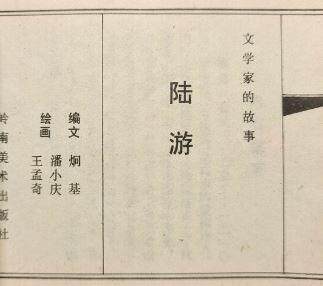 文学家的故事
陆游
编文 炯基
绘画 潘小庆
王孟奇
岭南美术出版社